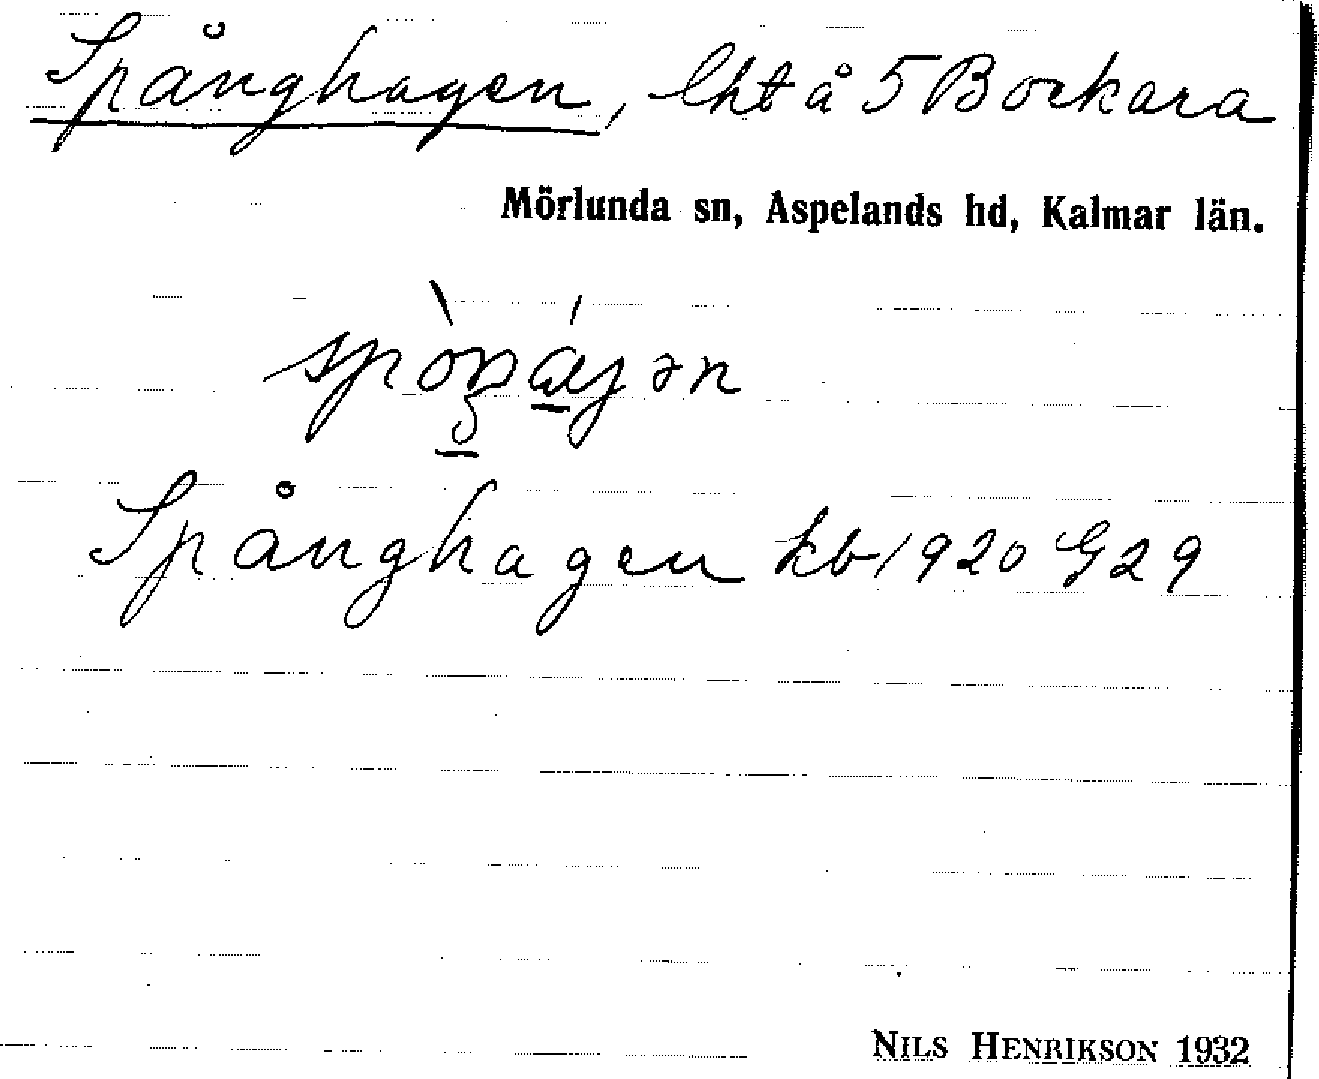 Spånghagen, lht å 5 Bockara
Mörlunda sn, Aspelands hd, Kalmar län.
Spånghagen kb 1920 G 29
NILS HENRIKSON 1932